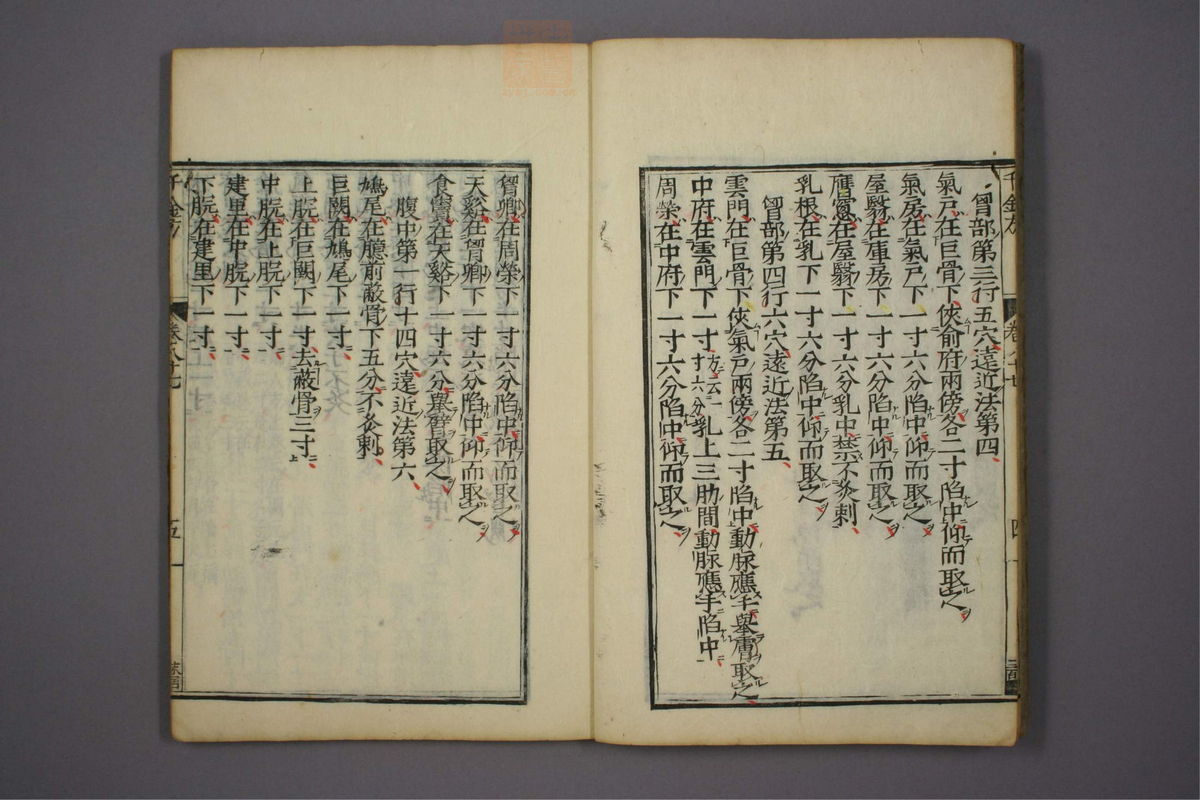 胷部第三行五穴遠近法第四
氣戸在巨骨下俠俞府兩傍各二寸陷中仰而取之
氣房在氣戸下一寸六分陷中仰而取之
屋翳在庫房下一寸六分陷中仰而取之
膺窻在屋翳下一寸六分乳中禁不灸刺
乳根在乳下一寸六分陷中仰而取之
胷部第四行六穴遠近法第五
雲門在巨骨下俠氣戸兩傍各二寸陷中動脉應手舉臂取之
中府在雲門下一寸一云一寸六分乳上三肋間動脉應手陷中
周榮在中府下一寸六分陷中仰而取之
千金方
卷八十七
四
胷鄉在周榮下一寸六分陷中仰而取之
天谿在胷鄉下一寸六分陷中仰而取之
食竇在天谿下一寸六分舉臂取之
腹中第一行十四穴遠近法第六
鳩尾在臆前蔽骨下五分不灸刺
巨闕在鳩尾下一寸
上脘在巨闕下一寸去蔽骨三寸
中脘在上脘下一寸
建里在中脘下一寸
下脘在建里下一寸
千金方
卷八十七
五